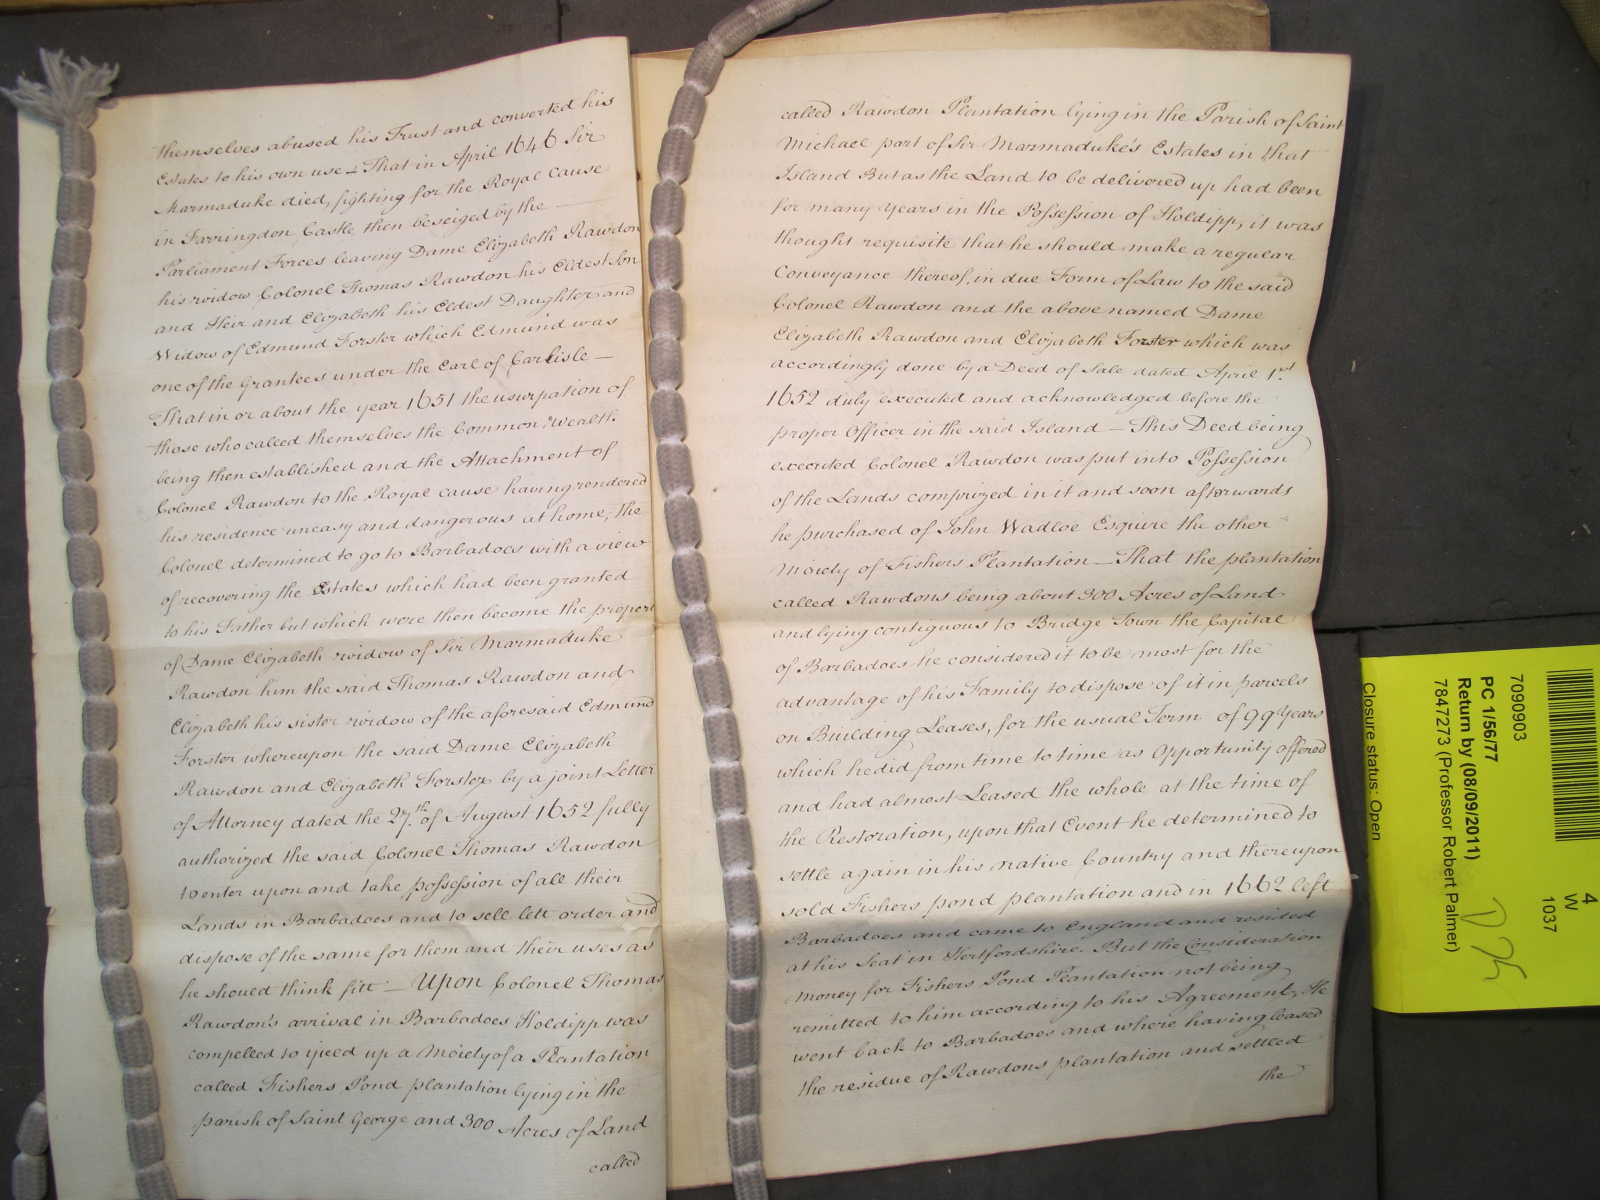 themselves abused his Trust and converted his
Estates to his own use – That in April 1646 Sir
Marmaduke died, fighting for the Royal Cause
in Farringdon Castle then beseiged by the
Parliament Forces leaving Dame Elizabeth Rawdon
his widow Colonel Thomas Rawdon his Eldest Son
and Heir and Elizabeth his Eldest Daughter and
Widow of Edmund Forster which Edmund was
one of the Grantees under the Earl of Carlisle –
That in or about the year 1651 the usurpation of
those who called themselves the Common Wealth
being then established and the Attachment of
Colonel Rawdon to the Royal cause having rendered
his residence uneasy and dangerous at home, the
Colonel determined to go to Barbadoes with a view
of recovering the Estates which had been granted
to his Father but which were then become the propert
of Dame Elizabeth widow of Sir Marmaduke
Rawdon him the said Thomas Rawdon and
Elizabeth his sister widow of the aforesaid Edmund
Forster whereupon the said Dame Elizabeth
Rawdon and Elizabeth Forster by a joint Letter
of Attorney dated the 27th of August 1652 fully
authorized the said Colonel Thomas Rawdon
to enter upon and take possession of all their
Lands in Barbadoes and to sell lett order and
dispose of the same for them and their uses as
he should think fitt – Upon Colonel Thomas
Rawdon's arrival in Barbadoes Holdipp was
compelled to yield up a Moiety of a Plantation
called Fishers Pond plantation lying in the
parish of Saint George and 300 Acres of Land
called
called Rawdon Plantation lying in the Parish of Saint
Michael part of Sir Marmaduke's Estates in that
Island But as the Land to be delivered up had been
for many Years in the Possession of Holdipp, it was
thought requisite that he should make a regular
Conveyance thereof, in due Form of Law to the said
Colonel Rawdon and the above named Dame
Elizabeth Rawdon and Elizabeth Forster which was
accordingly done by a Deed of Sale dated April 1st
1652 duly executed and acknowledged before the
proper Officer in the said Island – This Deed being
executed Colonel Rawdon was put into Possession
of the Lands comprized in it and soon afterwards
he purchased of John Wadloe Esquire the other
Moiety of Fishers Plantation – That the plantation
called Rawdons being about 300 Acres of Land
and lying contiguous to Bridge Town the Capital
of Barbadoes he considered it to be most for the
advantage of his Family to dispose of it in parcels
on Building Leases, for the usual Term of 99 Years
which he did from time to time as Opportunity offered
and had almost Leased the whole at the time of
the Restoration, upon that Event he determined to
settle again in his native Country and thereupon
sold Fishers pond plantation and in 1662 left
Barbadoes and came to England and resided
at his Seat in Hertfordshire. But the Consideration
money for Fishers Pond Plantation not being
remitted to him according to his Agreement, He
went back to Barbadoes and where having leased
the residue of Rawdons plantation and settled
the
4
W
1037
7090903
PC 1/56/77
Return by (08/09/2011)
7847273 (Professor Robert Palmer)
Closure status: Open